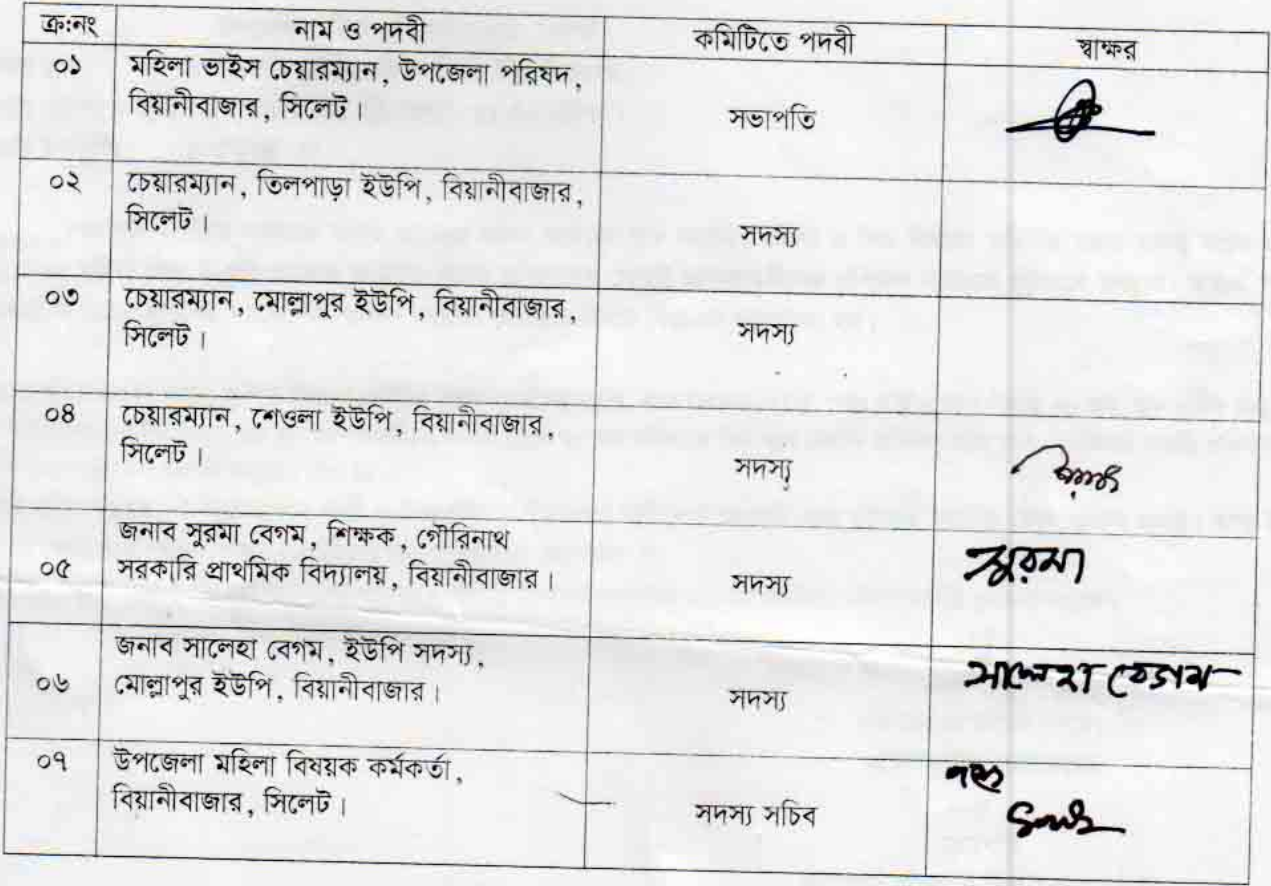 ক্র:নং নাম ও পদবী কমিটিতে পদবী স্বাক্ষর
০১ মহিলা ভাইস চেয়ারম্যান, উপজেলা পরিষদ,
বিয়ানীবাজার, সিলেট। সভাপতি
০২ চেয়ারম্যান, তিলপাড়া ইউপি, বিয়ানীবাজার,
সিলেট। সদস্য
০৩ চেয়ারম্যান, মোল্লাপুর ইউপি, বিয়ানীবাজার,
সিলেট। সদস্য
০৪ চেয়ারম্যান, শেওলা ইউপি, বিয়ানীবাজার,
সিলেট। সদস্য
জনাব সুরমা বেগম, শিক্ষক, গৌরিনাথ
০৫ সরকারি প্রাথমিক বিদ্যালয়, বিয়ানীবাজার। সদস্য সুরমা
জনাব সালেহা বেগম, ইউপি সদস্য,
০৬ মোল্লাপুর ইউপি, বিয়ানীবাজার। সদস্য সালেহা বেগম
০৭ উপজেলা মহিলা বিষয়ক কর্মকর্তা,
বিয়ানীবাজার, সিলেট। সদস্য সচিব